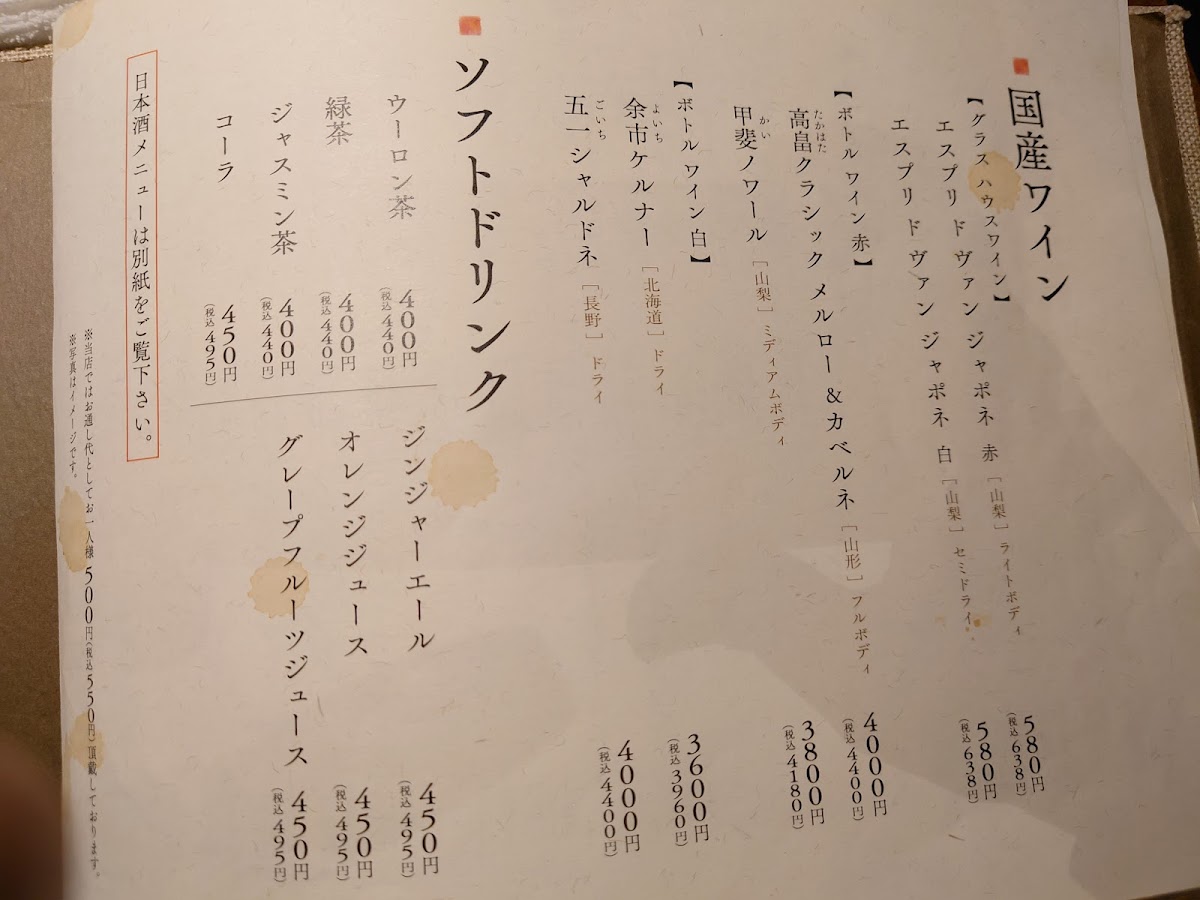 国産ワイン
【グラス ハウスワイン】
エスプリ ド ヴァン ジャポネ 赤 [山梨] ライトボディ 580円(税込638円)
エスプリ ド ヴァン ジャポネ 白 [山梨] セミドライ 580円(税込638円)
【ボトルワイン赤】
高畠クラシック メルロー&カベルネ [山形] フルボディ 4000円(税込4400円)
たかはた
甲斐ノワール [山梨] ミディアムボディ 3800円(税込4180円)
かい
【ボトルワイン白】
余市ケルナー [北海道] ドライ 3600円(税込3960円)
よいち
五一シャルドネ [長野] ドライ 4000円(税込4400円)
ごいち
ソフトドリンク
ウーロン茶 400円(税込440円)
緑茶 400円(税込440円)
ジャスミン茶 400円(税込440円)
コーラ 450円(税込495円)
ジンジャーエール 450円(税込495円)
オレンジジュース 450円(税込495円)
グレープフルーツジュース 450円(税込495円)
日本酒メニューは別紙をご覧下さい。
※当店ではお通し代としてお一人様500円(税込550円)頂戴しております。
※写真はイメージです。